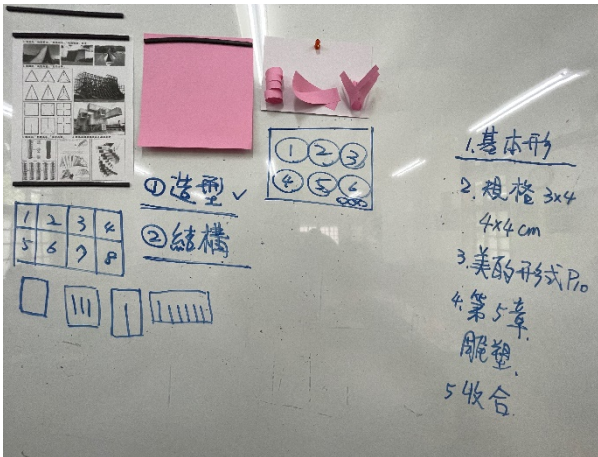 ①造型✓
②結構
1 2 3 4
5 6 7 8
① ② ③
④ ⑤ ⑥
1.基本形
2.規格 3x4
4x4cm
3.美的形式P10
4.第5章
雕塑
5收合